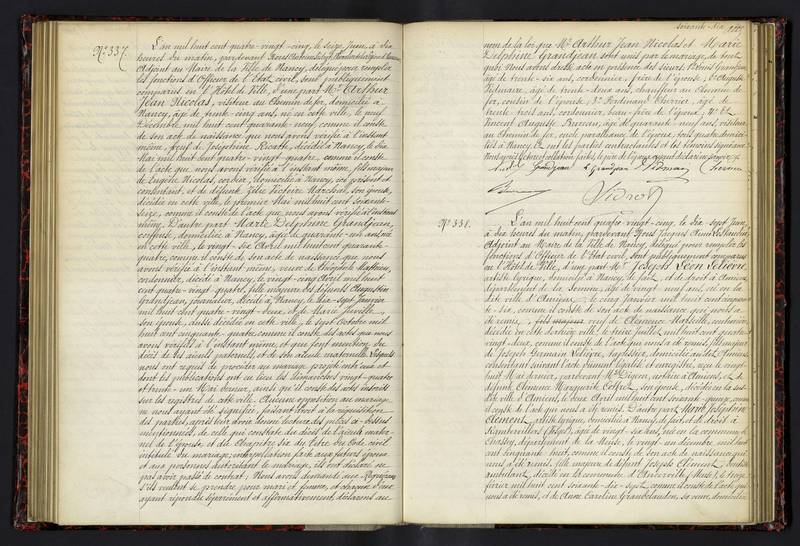 N° 337.
L'an mil huit cent quatre-vingt-cinq, le seize Juin, à six
heures du matin, pardevant Nous
Adjoint au Maire de la Ville de Nancy, délégué pour remplir
les fonctions d'Officier de l'Etat civil, sont publiquement
comparus en l'Hôtel de Ville, d'une part Mr Arthur
Jean Nicolas, visiteur au Chemin de fer, domicilié à
Nancy, âgé de trente-cinq ans, né en cette ville, le neuf
Décembre mil huit cent quarante-neuf, comme il conste
de son acte de naissance que nous avons vérifié à l'instant
même, veuf de Joséphine Ricatte, décédée à Nancy, le six
Mai mil huit cent quatre-vingt-quatre, comme il conste
de l'acte que nous avons vérifié à l'instant même, fils majeur
de Eugène Nicolas, cordier, domicilié à Nancy, ici présent et
consentant, et de défunte Zélie Victoire Marchal, son épouse,
décédée en cette ville, le premier Mai mil huit cent soixante-
seize, comme il conste de l'acte que nous avons vérifié à l'instant
même. D'autre part Marie Delphine Grandjean,
domiciliée à Nancy, âgée de quarante-un ans, née
en cette ville, le vingt-six Avril mil huit cent quarante-
quatre, comme il conste de son acte de naissance que nous
avons vérifié à l'instant même, veuve de Léopold Mathieu,
cordonnier, décédé à Nancy, le vingt-cinq Avril mil huit
cent quatre-vingt-quatre, fille majeure des défunts Augustin
Grandjean, journalier, décédé à Nancy, le dix-sept Janvier
mil huit cent quatre-vingt-deux, et de Marie
son épouse, aussi décédée en cette ville, le sept Octobre mil
huit cent cinquante-quatre, comme il conste des actes que nous
avons vérifiés à l'instant même, et qui font mention du
décès de ses aïeuls paternels, et de son aïeule maternelle. Lesquels
nous ont requis de procéder au mariage projeté entr'eux et
dont les publications ont eu lieu les Dimanches vingt-quatre
et trente-un Mai dernier, ainsi qu'il conste des actes inscrits
sur les registres de cette ville. Aucune opposition au mariage
ne nous ayant été signifiée, faisant droit à la réquisition
des parties, après leur avoir donné lecture des pièces ci-dessus
mentionnées, de celle qui constate du décès de l'aïeul mater-
nel de l'épouse, et du Chapitre six du Titre du Code civil
intitulé du mariage; interpellation faite aux futurs époux
et aux personnes autorisant le mariage, ils ont déclaré ne
pas avoir passé de contrat; Nous avons demandé aux Requérans
s'ils veulent se prendre pour mari et femme, et chacun d'eux
ayant répondu séparément et affirmativement, déclarons au
soixante-dix
nom de la loi que Mr Arthur Jean Nicolas et Marie
Delphine Grandjean sont unis par le mariage, de tout
quoi Nous avons dressé acte en présence des sieurs Louis Grandjean,
âgé de trente-six ans, cordonnier, frère de l'épouse, 2° Auguste
âgé de trente-deux ans, chauffeur au Chemin de
fer, cousin de l'épouse, 3° Ferdinand Thirrier, âgé de
trente-trois ans, cordonnier, beau-frère de l'épouse, 4° et
Vincent Auguste âgé de quarante-neuf ans, visiteur
au Chemin de fer, oncle de l'époux, tous quatre domici-
liés à Nancy. Et ont les parties contractantes et les témoins signé avec
Nous après lecture et collation faite, le père de l'époux ayant déclaré ne savoir
Grandjean L Grandjean Thirrier
N° 338.
L'an mil huit cent quatre-vingt-cinq, le dix-sept Juin,
à dix heures du matin, pardevant Nous
Adjoint au Maire de la Ville de Nancy, délégué pour remplir les
fonctions d'Officier de l'Etat civil, sont publiquement comparus
en l'Hôtel de Ville, d'une part Mr Joseph Léon Lelièvre,
artiste lyrique, domicilié à Nancy, de fait, et de droit à Amiens,
département de la Somme, âgé de vingt-neuf ans, né en la
dite ville d'Amiens, le cinq Janvier mil huit cent cinquan-
te-six, comme il conste de son acte de naissance qui nous a
été remis, veuf de Clémence
décédée en cette dernière ville, le treize Juillet mil huit cent quatre-vingt-
deux, comme il conste de l'acte qui nous a été remis, fils majeur
de Joseph Germain Lelièvre, tapissier, domicilié audit Amiens,
consentant suivant l'acte dûment légalisé, et enregistré, reçu le vingt-
huit Mai dernier, pardevant Me notaire à Amiens, et de
défunte Clémence Marguerite son épouse, décédée en la sus-
dite ville d'Amiens, le deux Avril mil huit cent soixante-quinze, comme
il conste de l'acte qui nous a été remis. D'autre part Marie Joséphine
Clément, artiste lyrique, domiciliée à Nancy, de fait, et de droit à
âgée de vingt-six ans, née en la commune de
département de la Meuse, le vingt-un décembre mil huit
cent cinquante-huit, comme il conste de son acte de naissance qui
nous a été remis, fille majeure de défunt Joseph Clément,
ambulant, décédé en la commune d'Ancerville (Meuse), le vingt
février mil huit cent soixante-dix-sept, comme il conste de l'acte qui
nous a été remis, et de Anne Caroline sa veuve, domiciliée